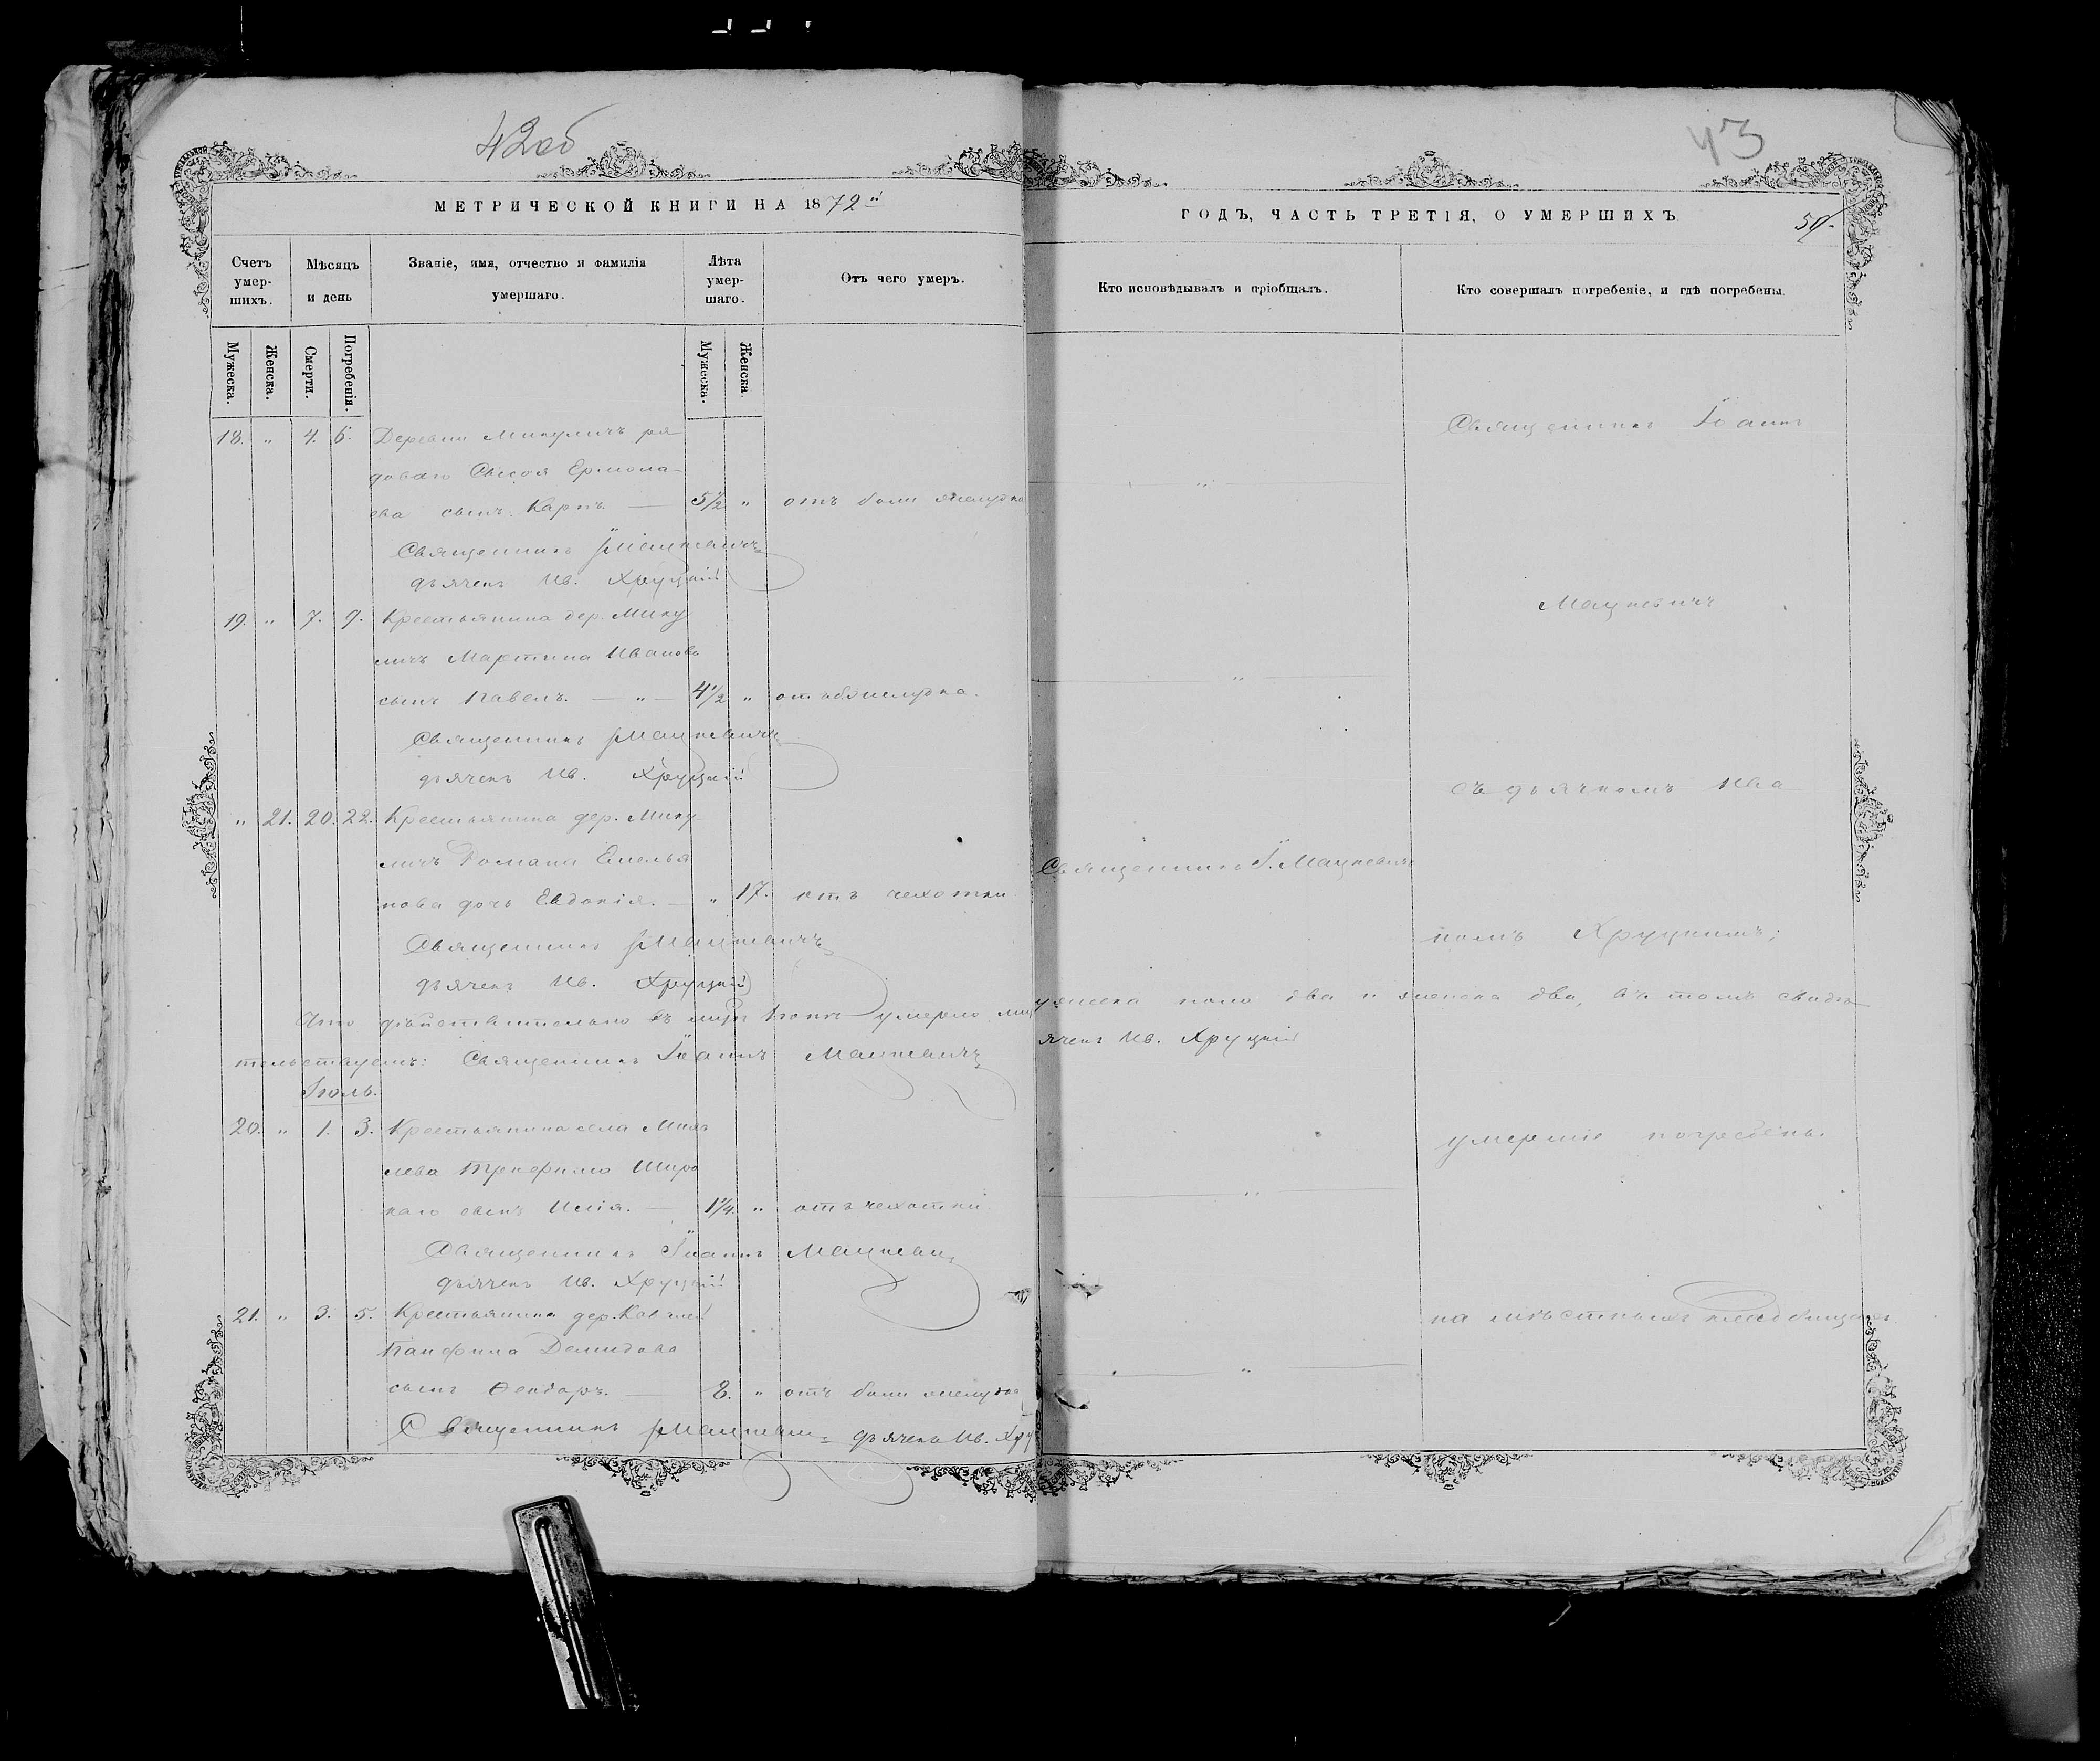 42об
МЕТРИЧЕСКОЙ КНИГИ НА 1872й
Счетъ умер-шихъ.
Мѣсяцъ и день
Званіе, имя, отчество и фамилія умершаго.
Лѣта умер-шаго.
Отъ чего умеръ.
Мужеска.
Женска.
Смерти.
Погребенія.
Мужеска.
Женска.
18. " 4. 6. Деревни Микуличъ ря
доваго Сысоя Ермола-
ева сынъ Карпъ. — 5½ " отъ боли желудка
Священникъ Мацкевичъ
дьячекъ Ив. Хруцкій
19. " 7. 9. Крестьянина дер. Мику
личъ Мартина Иванова
сынъ Павелъ. — " — 4½ " отъ б. желудка.
Священникъ Мацкевичъ
дьячекъ Ив. Хруцкій
" 21. 20. 22. Крестьянина дер. Мику
личъ Романа Емелья
нова дочь Евдокія. — " 17. отъ чехотки
Священникъ Мацкевичъ
дьячекъ Ив. Хруцкій
Что дѣйствительно въ умерло му
тельствуемъ: Священникъ Іоаннъ Мацкевичъ
Іюль.
20. " 1. 3. Крестьянина села
лева Широ
каго сынъ Илія. — 1¼ " отъ чехотки
Священникъ Іоаннъ Мацкеви
дьячекъ Ив. Хруцкій
21. " 3. 5. Крестьянина дер.
Панфила Демидова
сынъ Ѳеодоръ. — 8. " отъ боли желудка
Священникъ Мацкеви= дьячекъ Ив. Хру
43
ГОДЪ, ЧАСТЬ ТРЕТІЯ, О УМЕРШИХЪ
50.
Кто исповѣдывалъ и пріобщалъ.
Кто совершалъ погребеніе, и гдѣ погребены.
Священникъ Іоаннъ
"
Мацкевичъ
"
съ дьячкомъ Ива
Священникъ І. Мацкевичъ
номъ Хруцкимъ;
жеска пола два и женска два, въ томъ свидѣ
ячекъ Ив. Хруцкій
умершіе погребены
"
на мѣстныхъ кладбищахъ
"